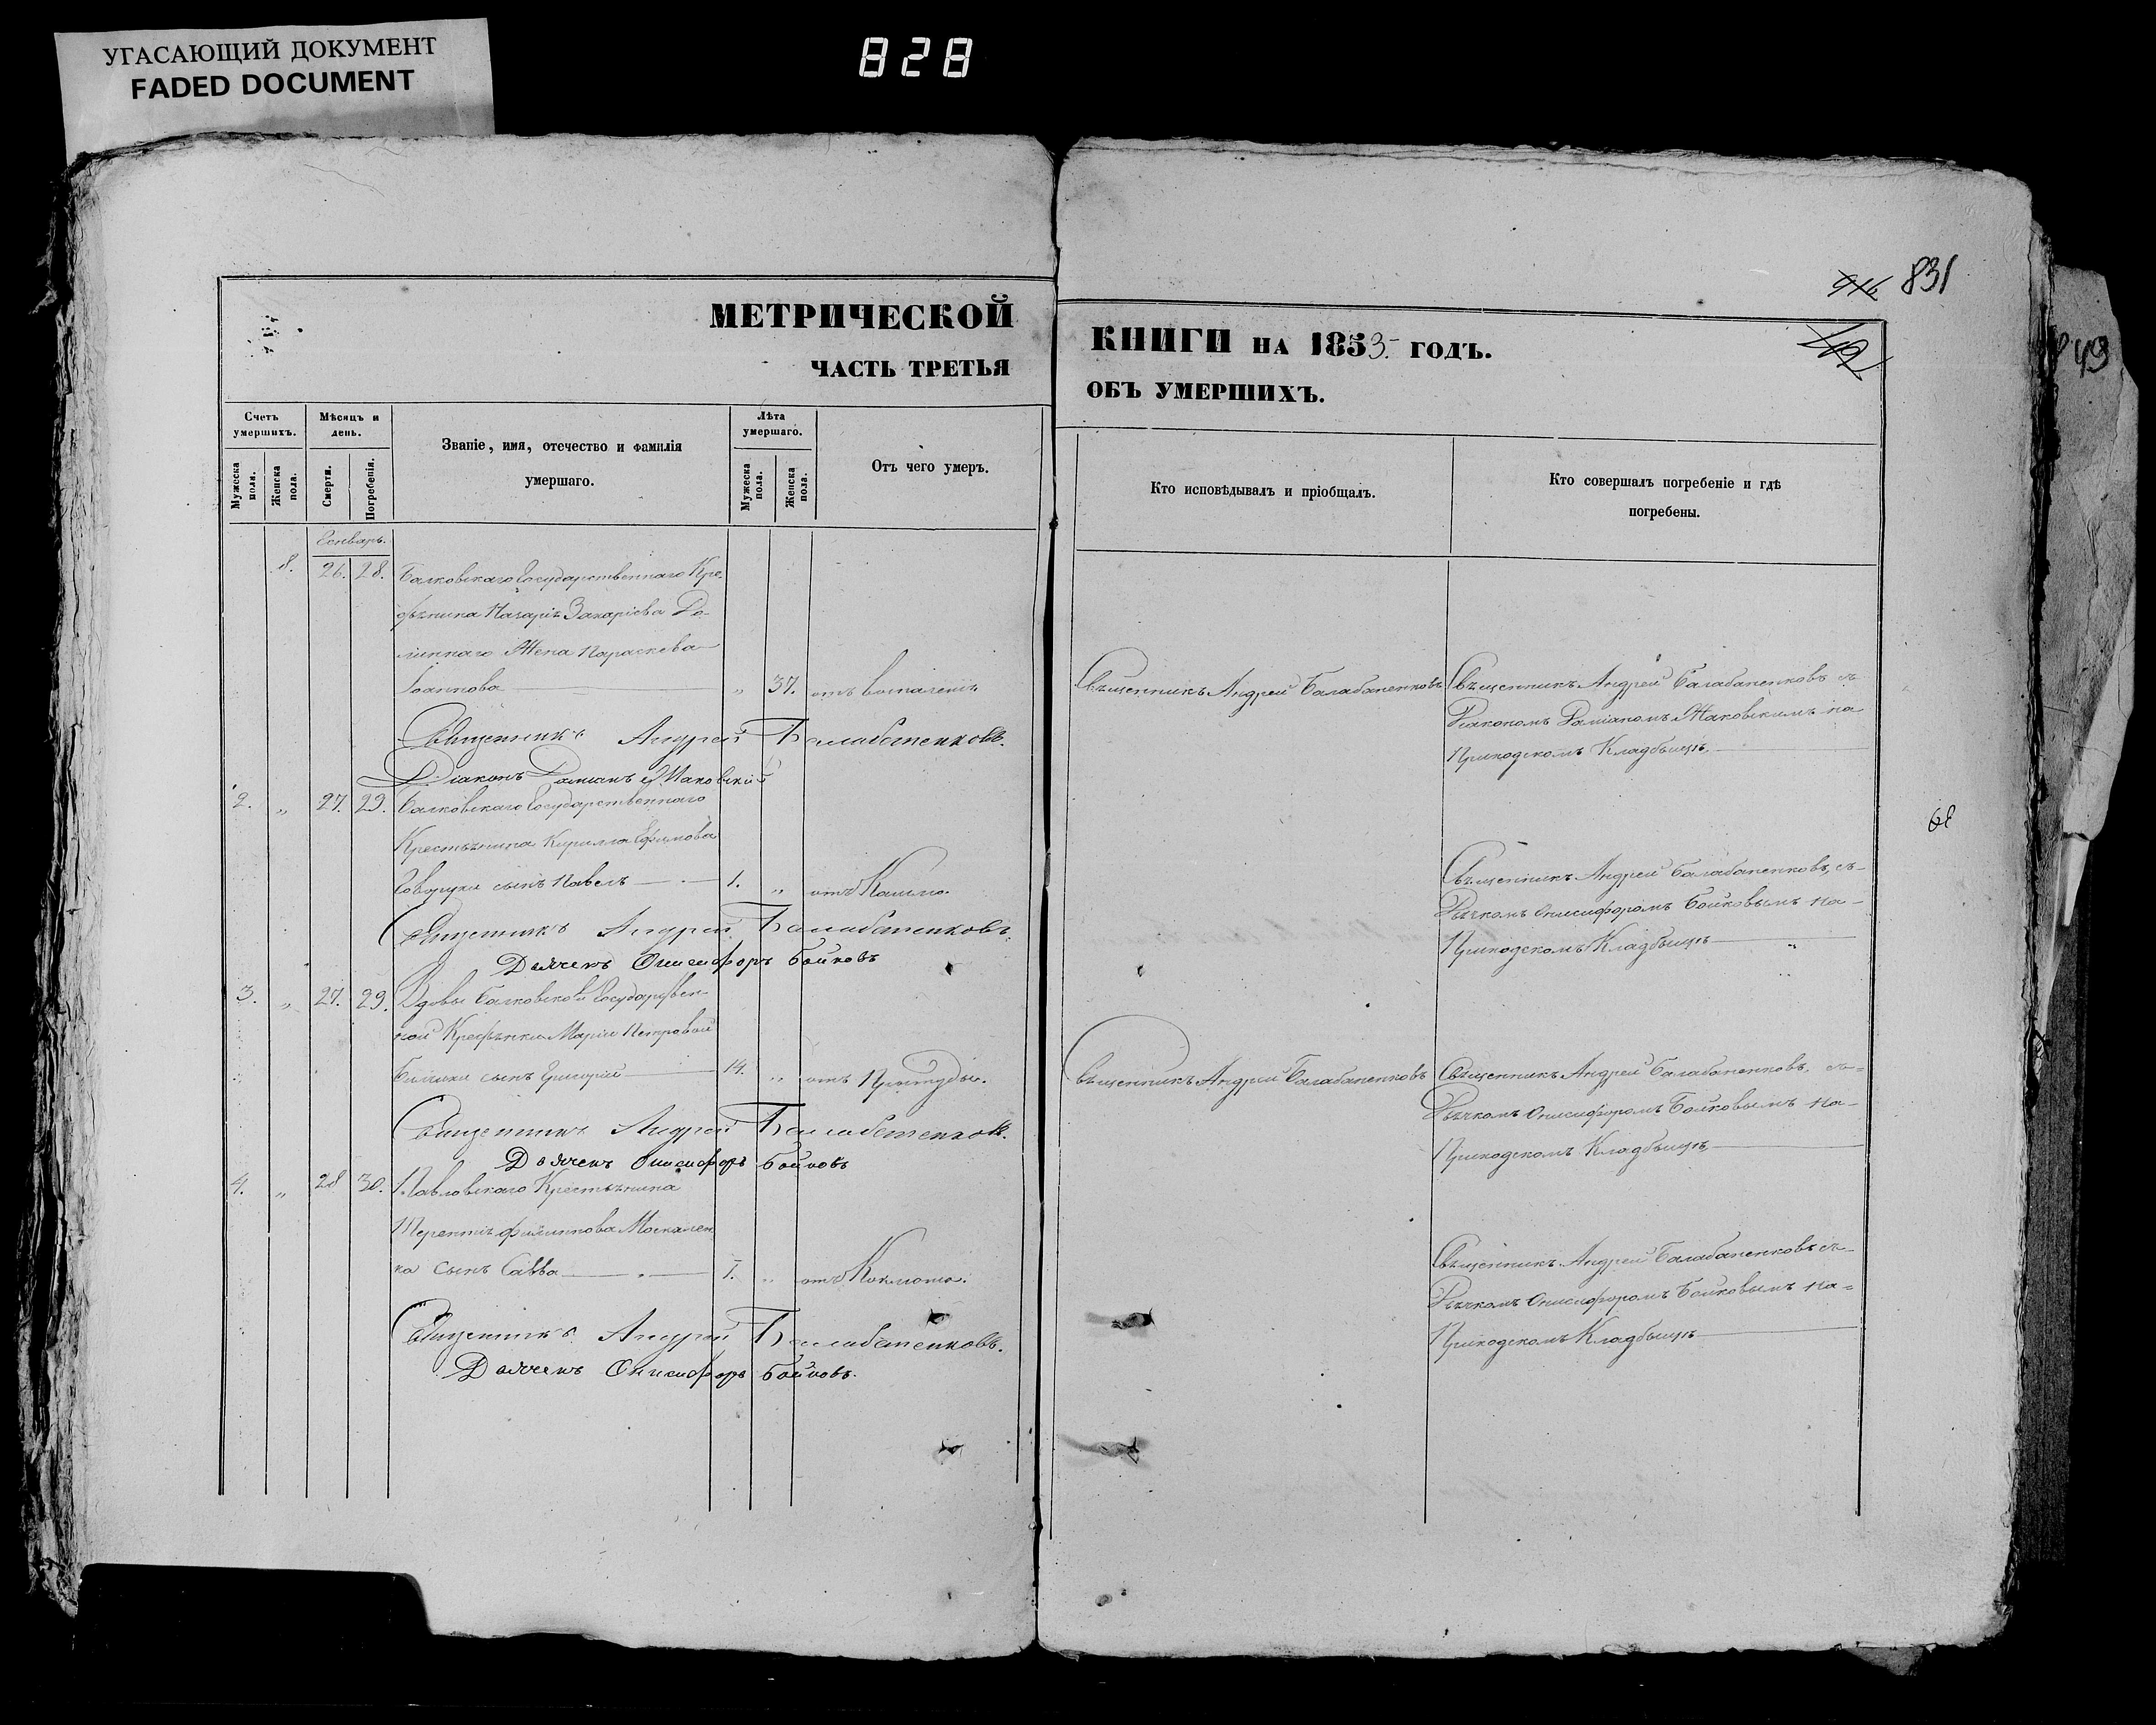 УГАСАЮЩИЙ ДОКУМЕНТ
FADED DOCUMENT
828
916 831
МЕТРИЧЕСКОЙ
КНИГИ НА 1853 ГОДЪ.
ЧАСТЬ ТРЕТЬЯ
ОБЪ УМЕРШИХЪ.
Счетъ умершихъ.
Мужеска пола.
Женска пола.
Мѣсяцъ и день.
Смерти.
Погребенія.
Званіе, имя, отечество и фамилія
умершаго.
Лѣта умершаго.
Мужеска пола.
Женска пола.
Отъ чего умеръ.
Кто исповѣдывалъ и пріобщалъ.
Кто совершалъ погребеніе и гдѣ
погребены.
8. 26. 28. Балковскаго Государственнаго Кре
Захаріева
Жена Параскева
Іоаннова „ 37. отъ воспаленія
Священникъ Андрей Балабаненковъ
Священникъ Андрей Балабаненковъ съ
Діакономъ Даміаномъ Маковскимъ на
Приходскомъ Кладбищѣ
Священникъ Андрей Балабаненковъ.
Діаконъ Даміанъ Маковскій
2. „ 27. 29. Балковскаго Государственнаго
Крестьянина Кирилла Ефимова
сынъ Павелъ 1. „ отъ Кашлю.
Священникъ Андрей Балабаненковъ, съ
Дьячкомъ Онисифоромъ Бойковымъ на
Приходскомъ Кладбищѣ „
Священникъ Андрей Балабаненковъ.
Дьячекъ Онисифоръ Бойковъ
3. „ 27. 29. Вдовы Балковской Государствен
ной Крестьянки Маріи Петровой
сынъ Григорій 14. „ отъ Простуды.
Священникъ Андрей Балабаненковъ
Священникъ Андрей Балабаненковъ, съ
Дьячкомъ Онисифоромъ Бойковымъ на
Приходскомъ Кладбищѣ
Священникъ Андрей Балабаненковъ.
Дьячекъ Онисифоръ Бойковъ
4. „ 28 30. Павловскаго Крестьянина
Терентія Филиппова Москален
ка сынъ Савва 1. „ отъ
Священникъ Андрей Балабаненковъ съ
Дьячкомъ Онисифоромъ Бойковымъ на
Приходскомъ Кладбищѣ
Священникъ Андрей Балабаненковъ.
Дьячекъ Онисифоръ Бойковъ.